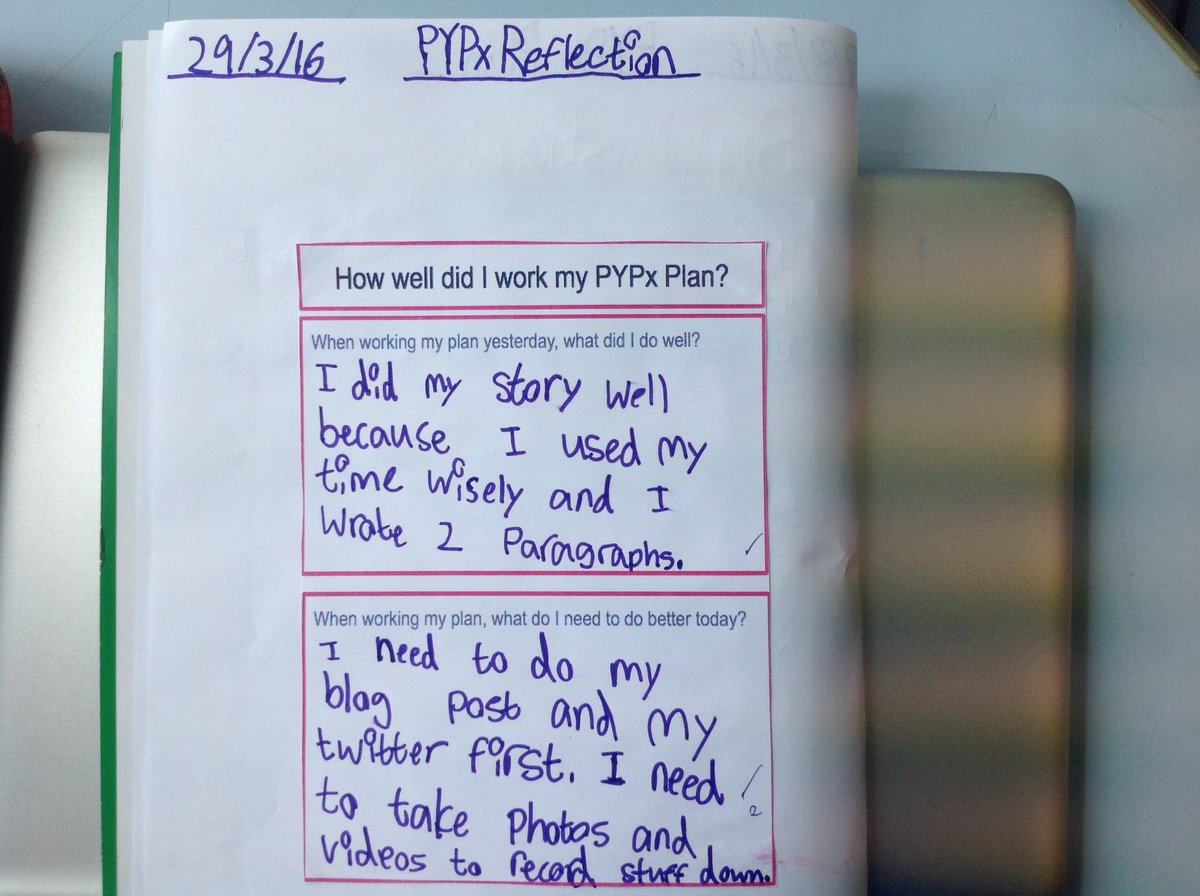 29/3/16 PYPx Reflection
How well did I work my PYPx Plan?
When working my plan yesterday, what did I do well?
I did my story well
because I used my
time wisely and I
wrote 2 Paragraphs.
When working my plan, what do I need to do better today?
I need to do my
blog post and my
twitter first. I need
2
to take photos and
videos to record stuff down.